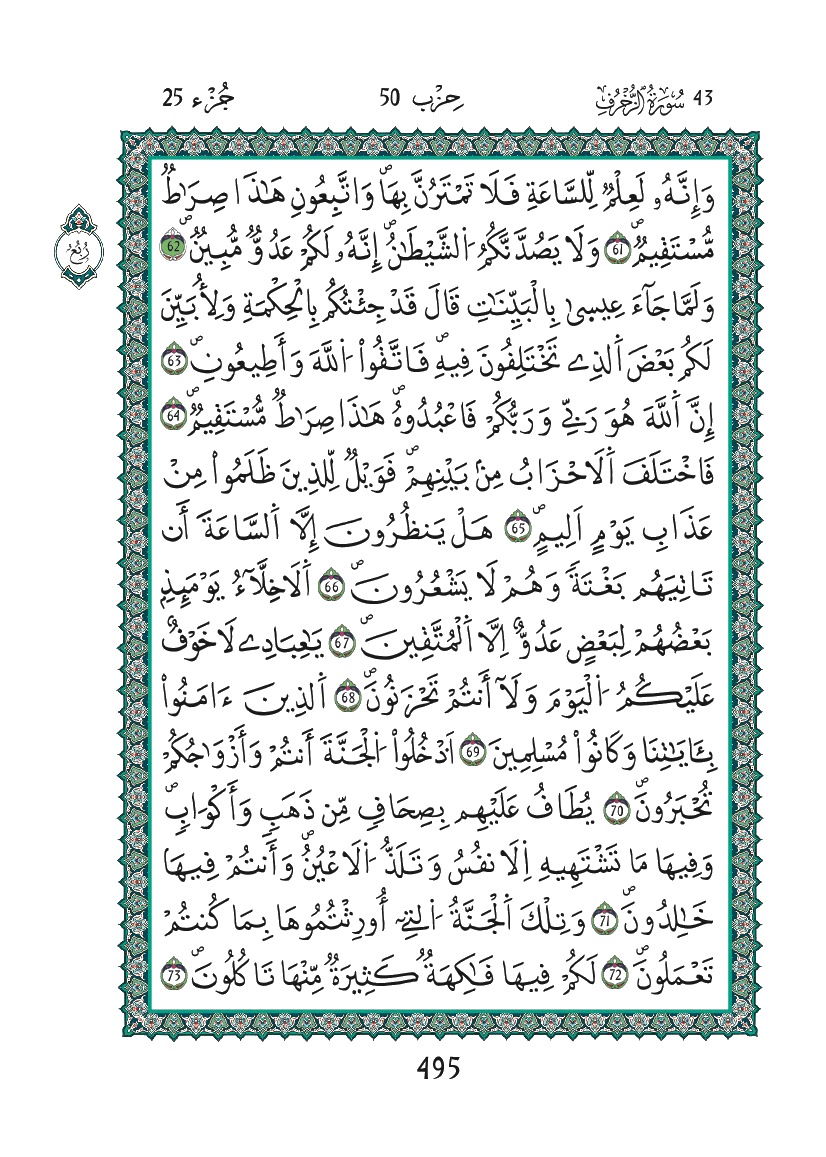 43 سُورَةُ الزُّخْرُفِ
حِزْب 50
جُزْء 25
وَإِنَّهُۥ لَعِلْمٌ لِّلسَّاعَةِ فَلَا تَمْتَرُنَّ بِهَاۖ وَاتَّبِعُونِ هَٰذَا صِرَٰطٌ
مُّسْتَقِيمٌۖ 61 وَلَا يَصُدَّنَّكُمُ الشَّيْطَٰنُۖ إِنَّهُۥ لَكُمْ عَدُوٌّ مُّبِينٌۖ 62
رُبُع
وَلَمَّا جَآءَ عِيسۭيٰ بِالْبَيِّنَٰتِ قَالَ قَدْ جِئْتُكُم بِالْحِكْمَةِ وَلِأُبَيِّنَ
لَكُم بَعْضَ اَ۬لذِے تَخْتَلِفُونَ فِيهِۖ فَاتَّقُواْ اُ۬للَّهَ وَأَطِيعُونِۖ 63
إِنَّ اَ۬للَّهَ هُوَ رَبِّے وَرَبُّكُمْ فَاعْبُدُوهُۖ هَٰذَا صِرَٰطٌ مُّسْتَقِيمٌۖ 64
فَاخْتَلَفَ اَ۬لَاحْزَابُ مِنۢ بَيْنِهِمْۖ فَوَيْلٌ لِّلذِينَ ظَلَمُواْ مِنْ
عَذَابِ يَوْمٍ اَلِيمٍۖ 65 هَلْ يَنظُرُونَ إِلَّا اَ۬لسَّاعَةَ أَن
تَاتِيَهُم بَغْتَةً وَهُمْ لَا يَشْعُرُونَۖ 66 اَ۬لَاخِلَّآءُ يَوْمَئِذِۢ
بَعْضُهُمْ لِبَعْضٍ عَدُوٌّ اِلَّا اَ۬لْمُتَّقِينَۖ 67 يَٰعِبَادِے لَا خَوْفٌ
عَلَيْكُمُ اُ۬لْيَوْمَ وَلَآ أَنتُمْ تَحْزَنُونَۖ 68 اَ۬لذِينَ ءَامَنُواْ
بِـَٔايَٰتِنَا وَكَانُواْ مُسْلِمِينَ 69 اَ۟دْخُلُواْ اُ۬لْجَنَّةَ أَنتُمْ وَأَزْوَٰجُكُمْ
تُحْبَرُونَۖ 70 يُطَافُ عَلَيْهِم بِصِحَافٍ مِّن ذَهَبٍ وَأَكْوَابٍۖ
وَفِيهَا مَا تَشْتَهِيهِ اِ۬لَانفُسُ وَتَلَذُّ اُ۬لَاعْيُنُۖ وَأَنتُمْ فِيهَا
خَٰلِدُونَۖ 71 وَتِلْكَ اَ۬لْجَنَّةُ اُ۬لتِےٓ أُورِثْتُمُوهَا بِمَا كُنتُمْ
تَعْمَلُونَۖ 72 لَكُمْ فِيهَا فَٰكِهَةٌ كَثِيرَةٌ مِّنْهَا تَاكُلُونَۖ 73
495